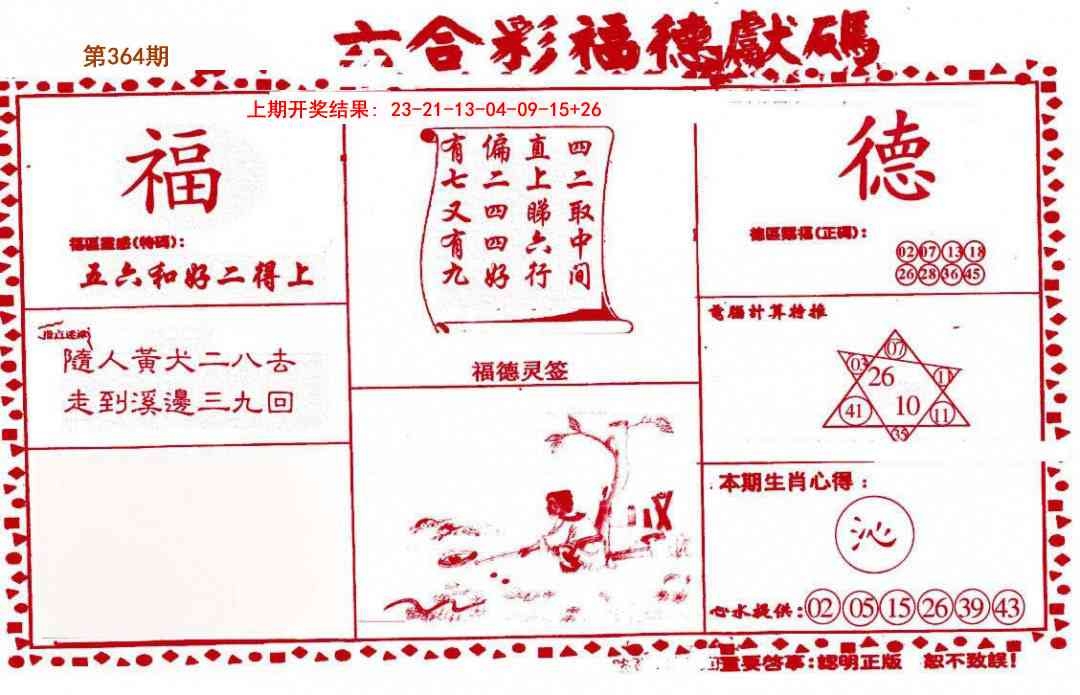 六合彩福德獻碼
第364期
上期开奖结果: 23-21-13-04-09-15+26
福
福區靈感(特碼):
五六和好二得上
隨人黃犬二八去
走到溪邊三九回
四二取中间
直上睇六行
偏二四四好
有七又有九
福德灵签
德
德區賜福(正碼):
02 07 13 18
26 28 36 45
電腦計算特推
07
03 26 11
41 10 11
35
本期生肖心得:
沁
心水提供:02 05 15 26 39 43
重要啓事:認明正版 恕不致誤!